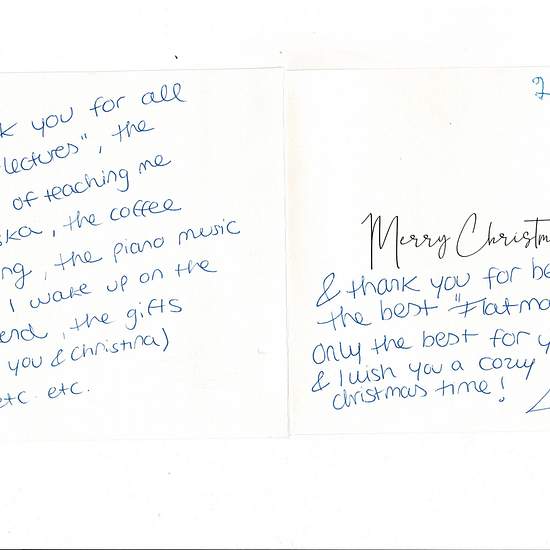 k you for all
lectures", the
of teaching me
ska, the coffee
ng, the piano music
I wake up on the
end, the gifts
you & Christina)
etc. etc.
2
Merry Christm
& thank you for be
the best "Flatma
only the best for y
& I wish you a cozy
christmas time!